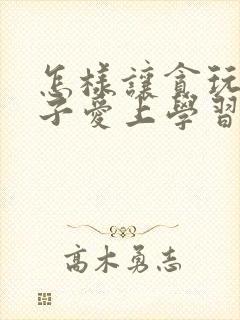 怎樣讓貪玩
子愛上學習
高木勇志